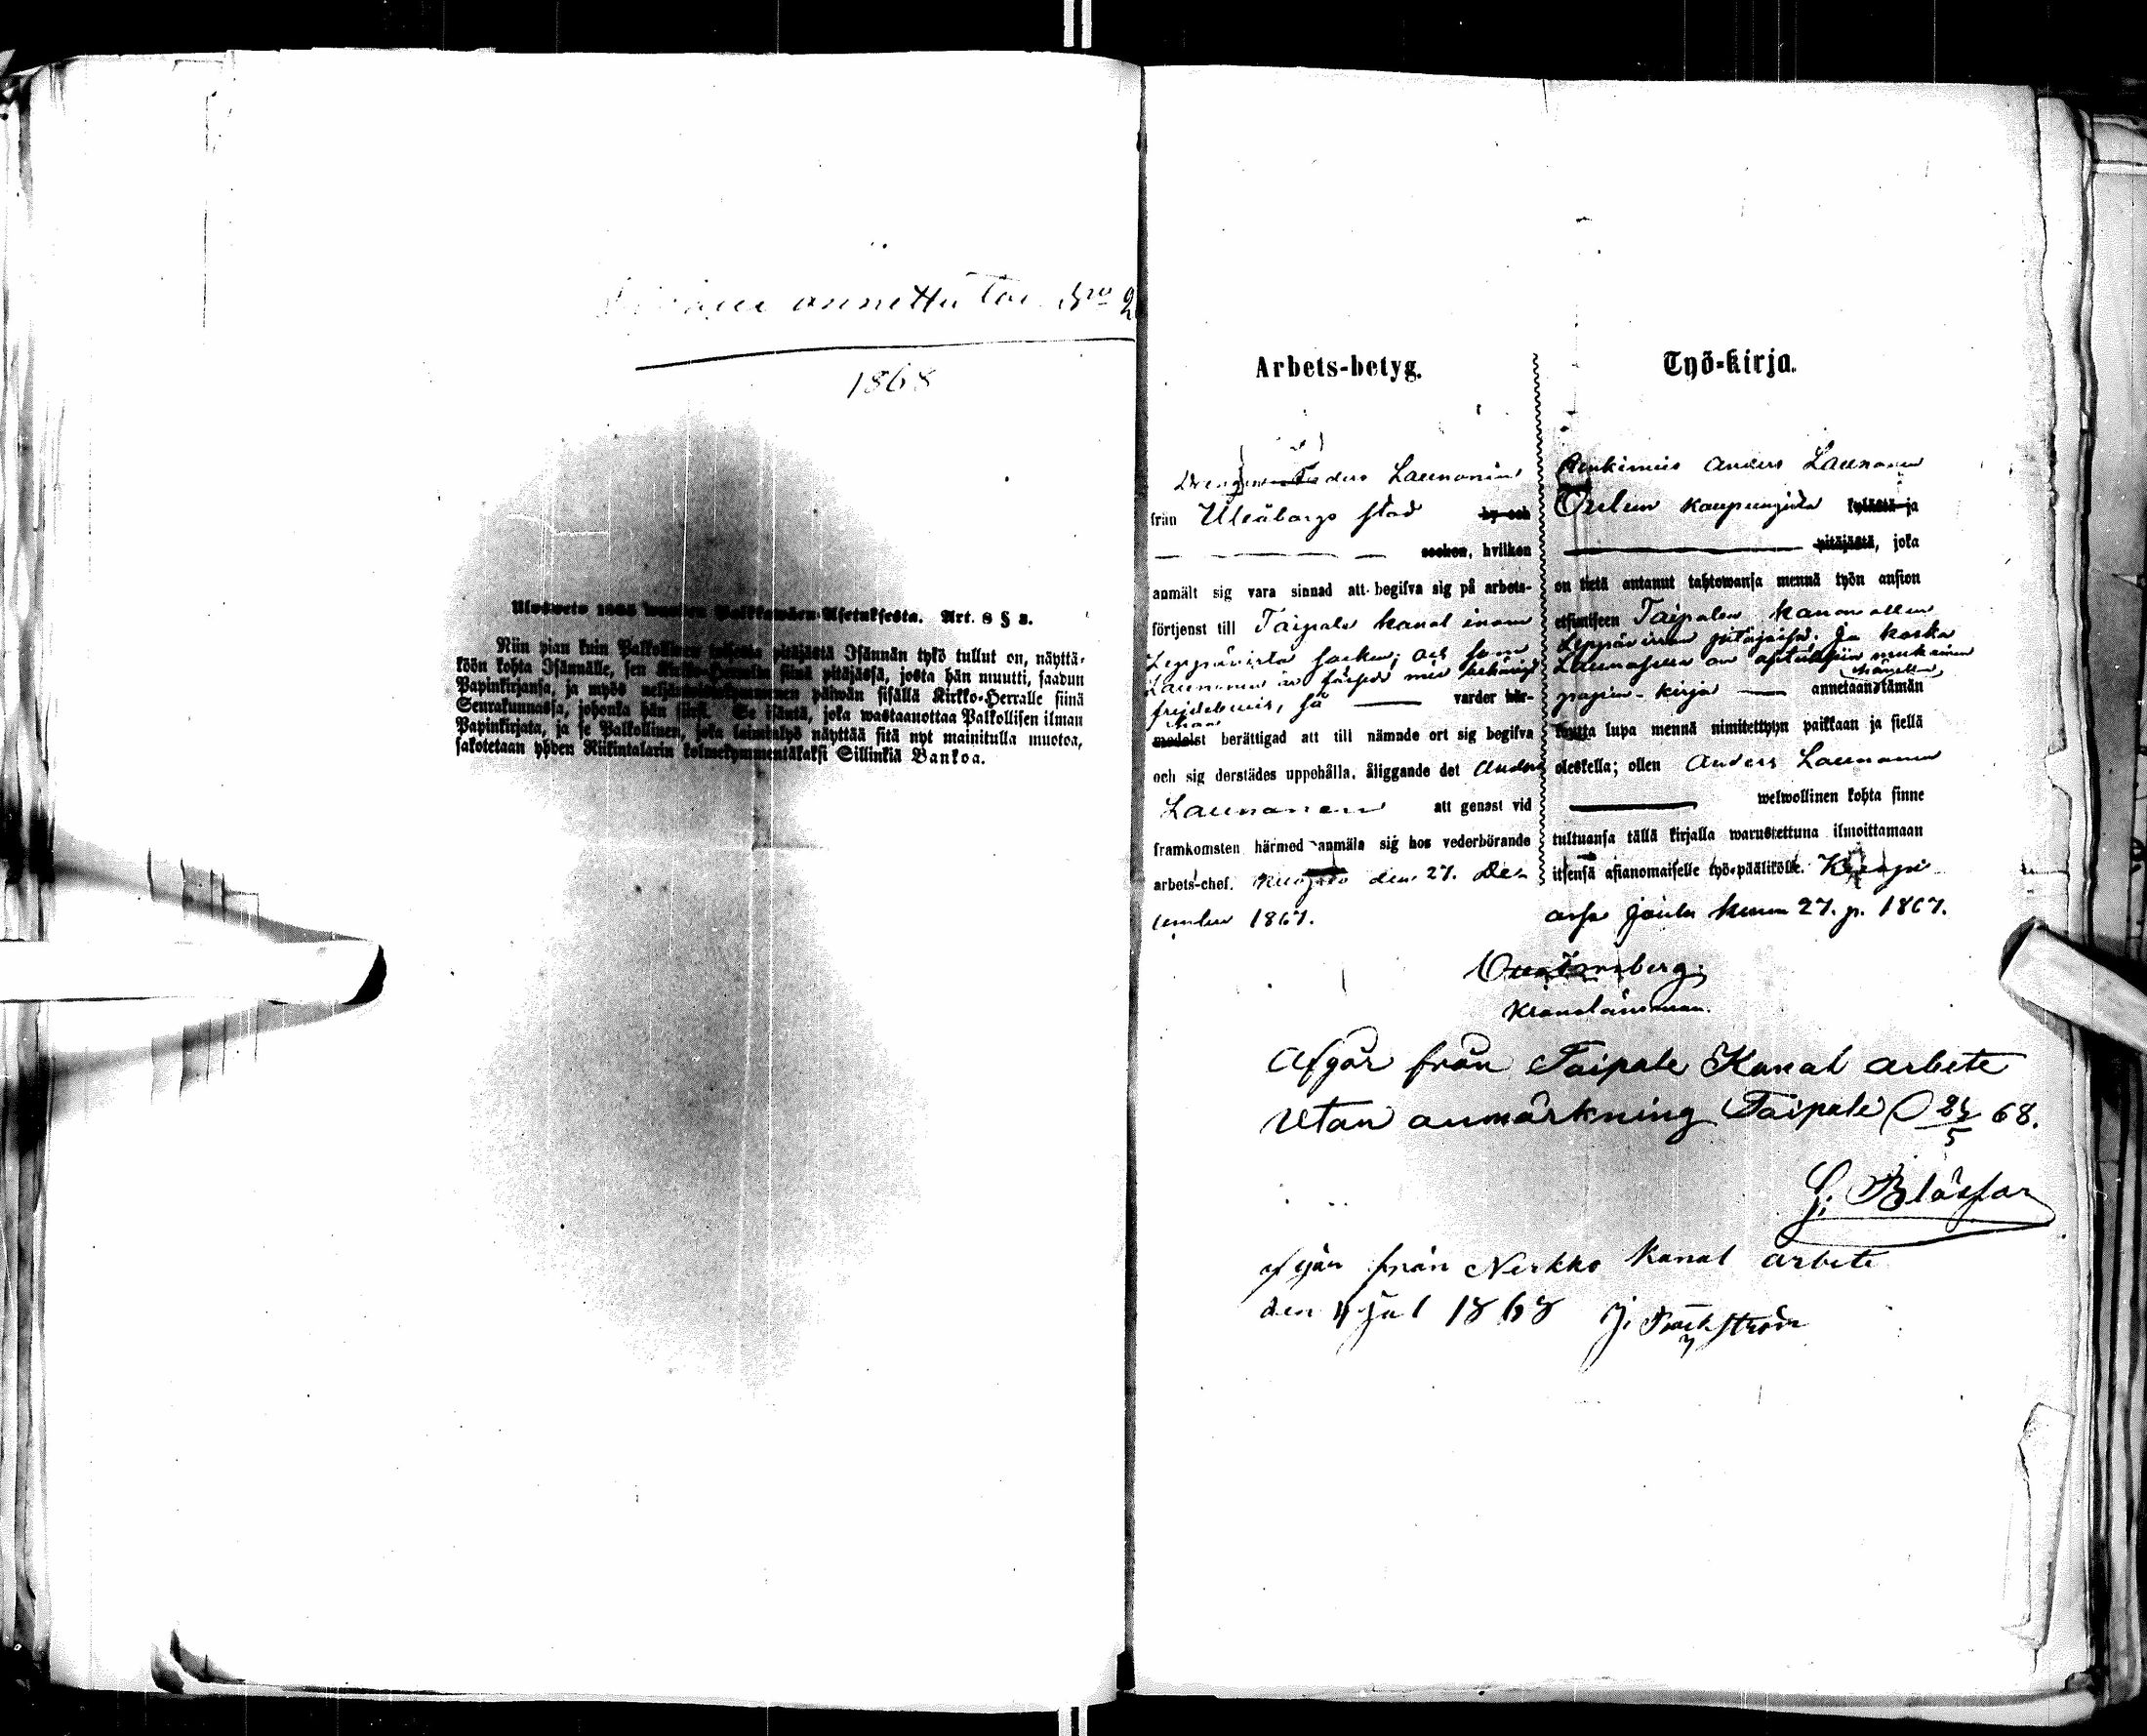 annettu
1868
Ulosveto 1865 wuoden Palkkawäen-Asetuksesta. Art. 8 § 3.
Niin pian kuin Palkollinen toisesta pitäjästä Isännän tykö tullut on, näyttä-
köön kohta Isännälle, sen Kirkko-Herralta siinä pitäjässä, josta hän muutti, saadun
Papinkirjansa, ja myös neljäntoistakymmenen päiwän sisällä Kirkko-Herralle siinä
Seurakunnassa, johonka hän siirsi. Se isäntä, joka wastaanottaa Palkollisen ilman
Papinkirjata, ja se Palkollinen, joka laiminlyö näyttää sitä nyt mainitulla muotoa,
sakotetaan yhden Riikintalarin kolmekymmentäkaksi Sillinkiä Bankoa.
Arbets-betyg.
Drengen Anders Launonen
från Uleåborgs stad by och
socken, hvilken
anmält sig vara sinnad att begifva sig på arbets-
förtjenst till Taipale kanal inom
Leppävirta socken; och som
Launonen är försedd med behörigt
frejdebevis, så varder här-
medelst berättigad att till nämnde ort sig begifva
och sig derstädes uppehålla, åliggande det Anders
Launonen att genast vid
framkomsten härmed anmäla sig hos vederbörande
arbets-chef. Kuopio den 27. De-
cember 1867.
Työ-kirja.
Renkimies Anders Launonen
Oulun kaupungista kylästä ja
pitäjästä, joka
on tietä antanut tahtowansa mennä työn ansion
etsimiseen Taipaleen kanavallen
Leppävirran pitäjässä. Ja koska
Launosella on asetuksen mukainen
papin-kirja annetaan tämän
kautta lupa mennä nimitettyyn paikkaan ja siellä
oleskella; ollen Anders Launonen
welwollinen kohta sinne
tultuansa tällä kirjalla warustettuna ilmoittamaan
itsensä asianomaiselle työ-päällikölle. Kuopi-
ossa Joulu kuun 27. p. 1867.
Kronolänsman.
Afgår från Taipale Kanal arbete
utan anmärkning Taipale 68.
afgår från Nerkko kanal arbete
den 4 Jul 1868 J.